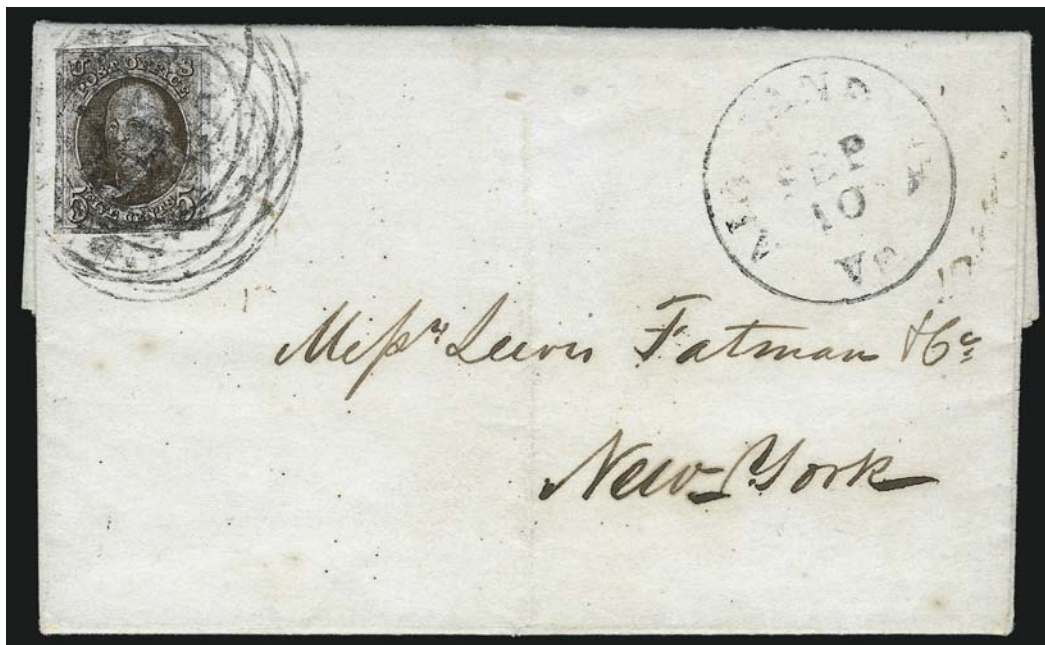 U S
POST OFFICE
5 FIVE CENTS 5
SEP
10
Messrs Lewis Fatman & Co
New York